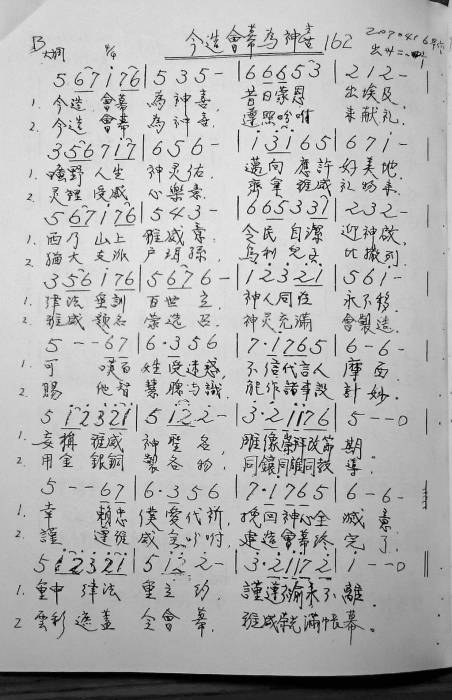 今造會幕為神臺 162
B 大調 4/4
5 6 7 1 7 6 | 5 3 5 - | 6 6 6 5 3 | 2 1 2 - |
1. 今造 會幕 為神臺, 昔日蒙恩 出埃及
2. 今造 會幕 為神臺, 遵照吩咐 來献礼,
3 5 6 7 1 7 | 6 5 6 - | 1 3 1 6 5 | 6 7 1 - |
1. 曠野人生 神灵佑 邁向應許好美地
2. 灵裡受感 心樂意 齊拿 礼物來
5 6 7 1 7 6 | 5 4 3 - | 6 6 5 3 3 1 | 2 3 2 - |
1. 西乃山上 雅威意 令民自潔 迎神啟
2. 猶大支派 户珥孫 烏利兒子 比撒列
3 5 6 1 7 6 | 5 6 7 6 - | 1 2 3 2 1 | 5 6 1 - |
1. 律法 聖訓 百世立 神人同住 永不移
2. 雅威題名 神灵充滿 會製造
5 - - 6 7 | 6 · 3 5 6 | 7 · 1 7 6 5 | 6 - 6 - |
1. 可 嘆百 姓受迷惑, 不信代言人 摩西
2. 賜 他智 慧聰与識 能作諸事設 計妙.
5 1 2 3 2 1 | 5 1 2 2 - | 3 · 2 1 1 7 6 | 5 - - 0
1. 妄稱 雅威 神聖名, 雕像崇拜改節 期
2. 用金 銀銅 製各物,
5 - - 6 7 | 6 · 3 5 6 | 7 · 1 7 6 5 | 6 - 6 -
1. 幸 賴忠 僕愛代祈, 挽回神心全 滅意
2. 謹 遵雅 威 吩咐 建造會幕 完了
5 1 2 3 2 1 | 5 1 2 2 - | 3 · 2 1 1 7 2 | 1 - - 0
1. 重申 律法 重立約 謹遵 永不離
2. 雲彩遮蓋 全會幕, 雅威榮光滿帳幕。